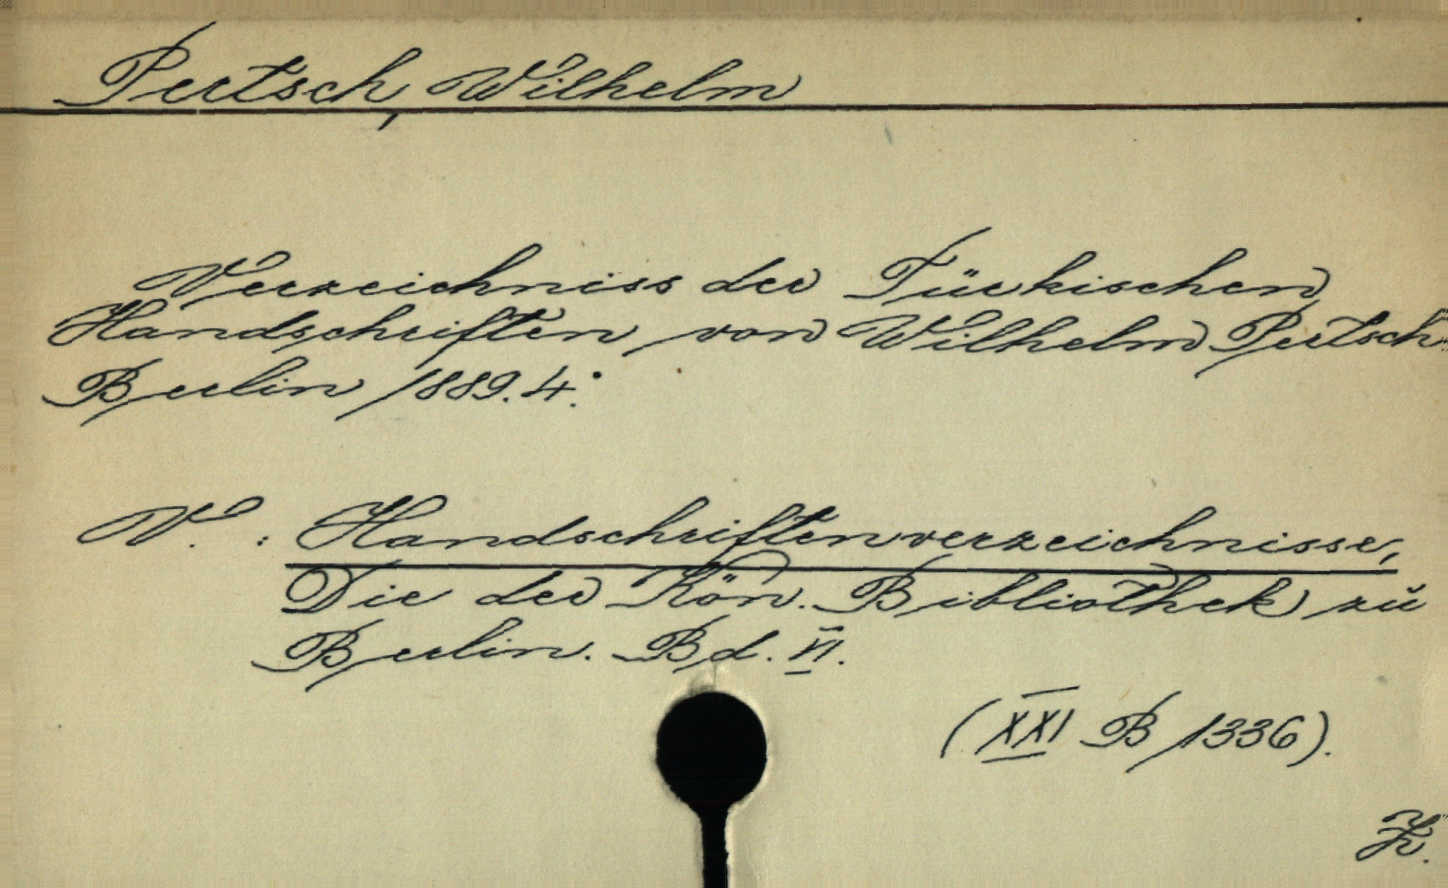 Pertsch, Wilhelm
Verzeichniss der Türkischen
Handschriften, von Wilhelm Pertsch
Berlin 1889. 4°.
V. : Handschriftenverzeichnisse,
Die der Kön. Bibliothek zŭ
Berlin. Bd. VI.
(XXI B 1336).